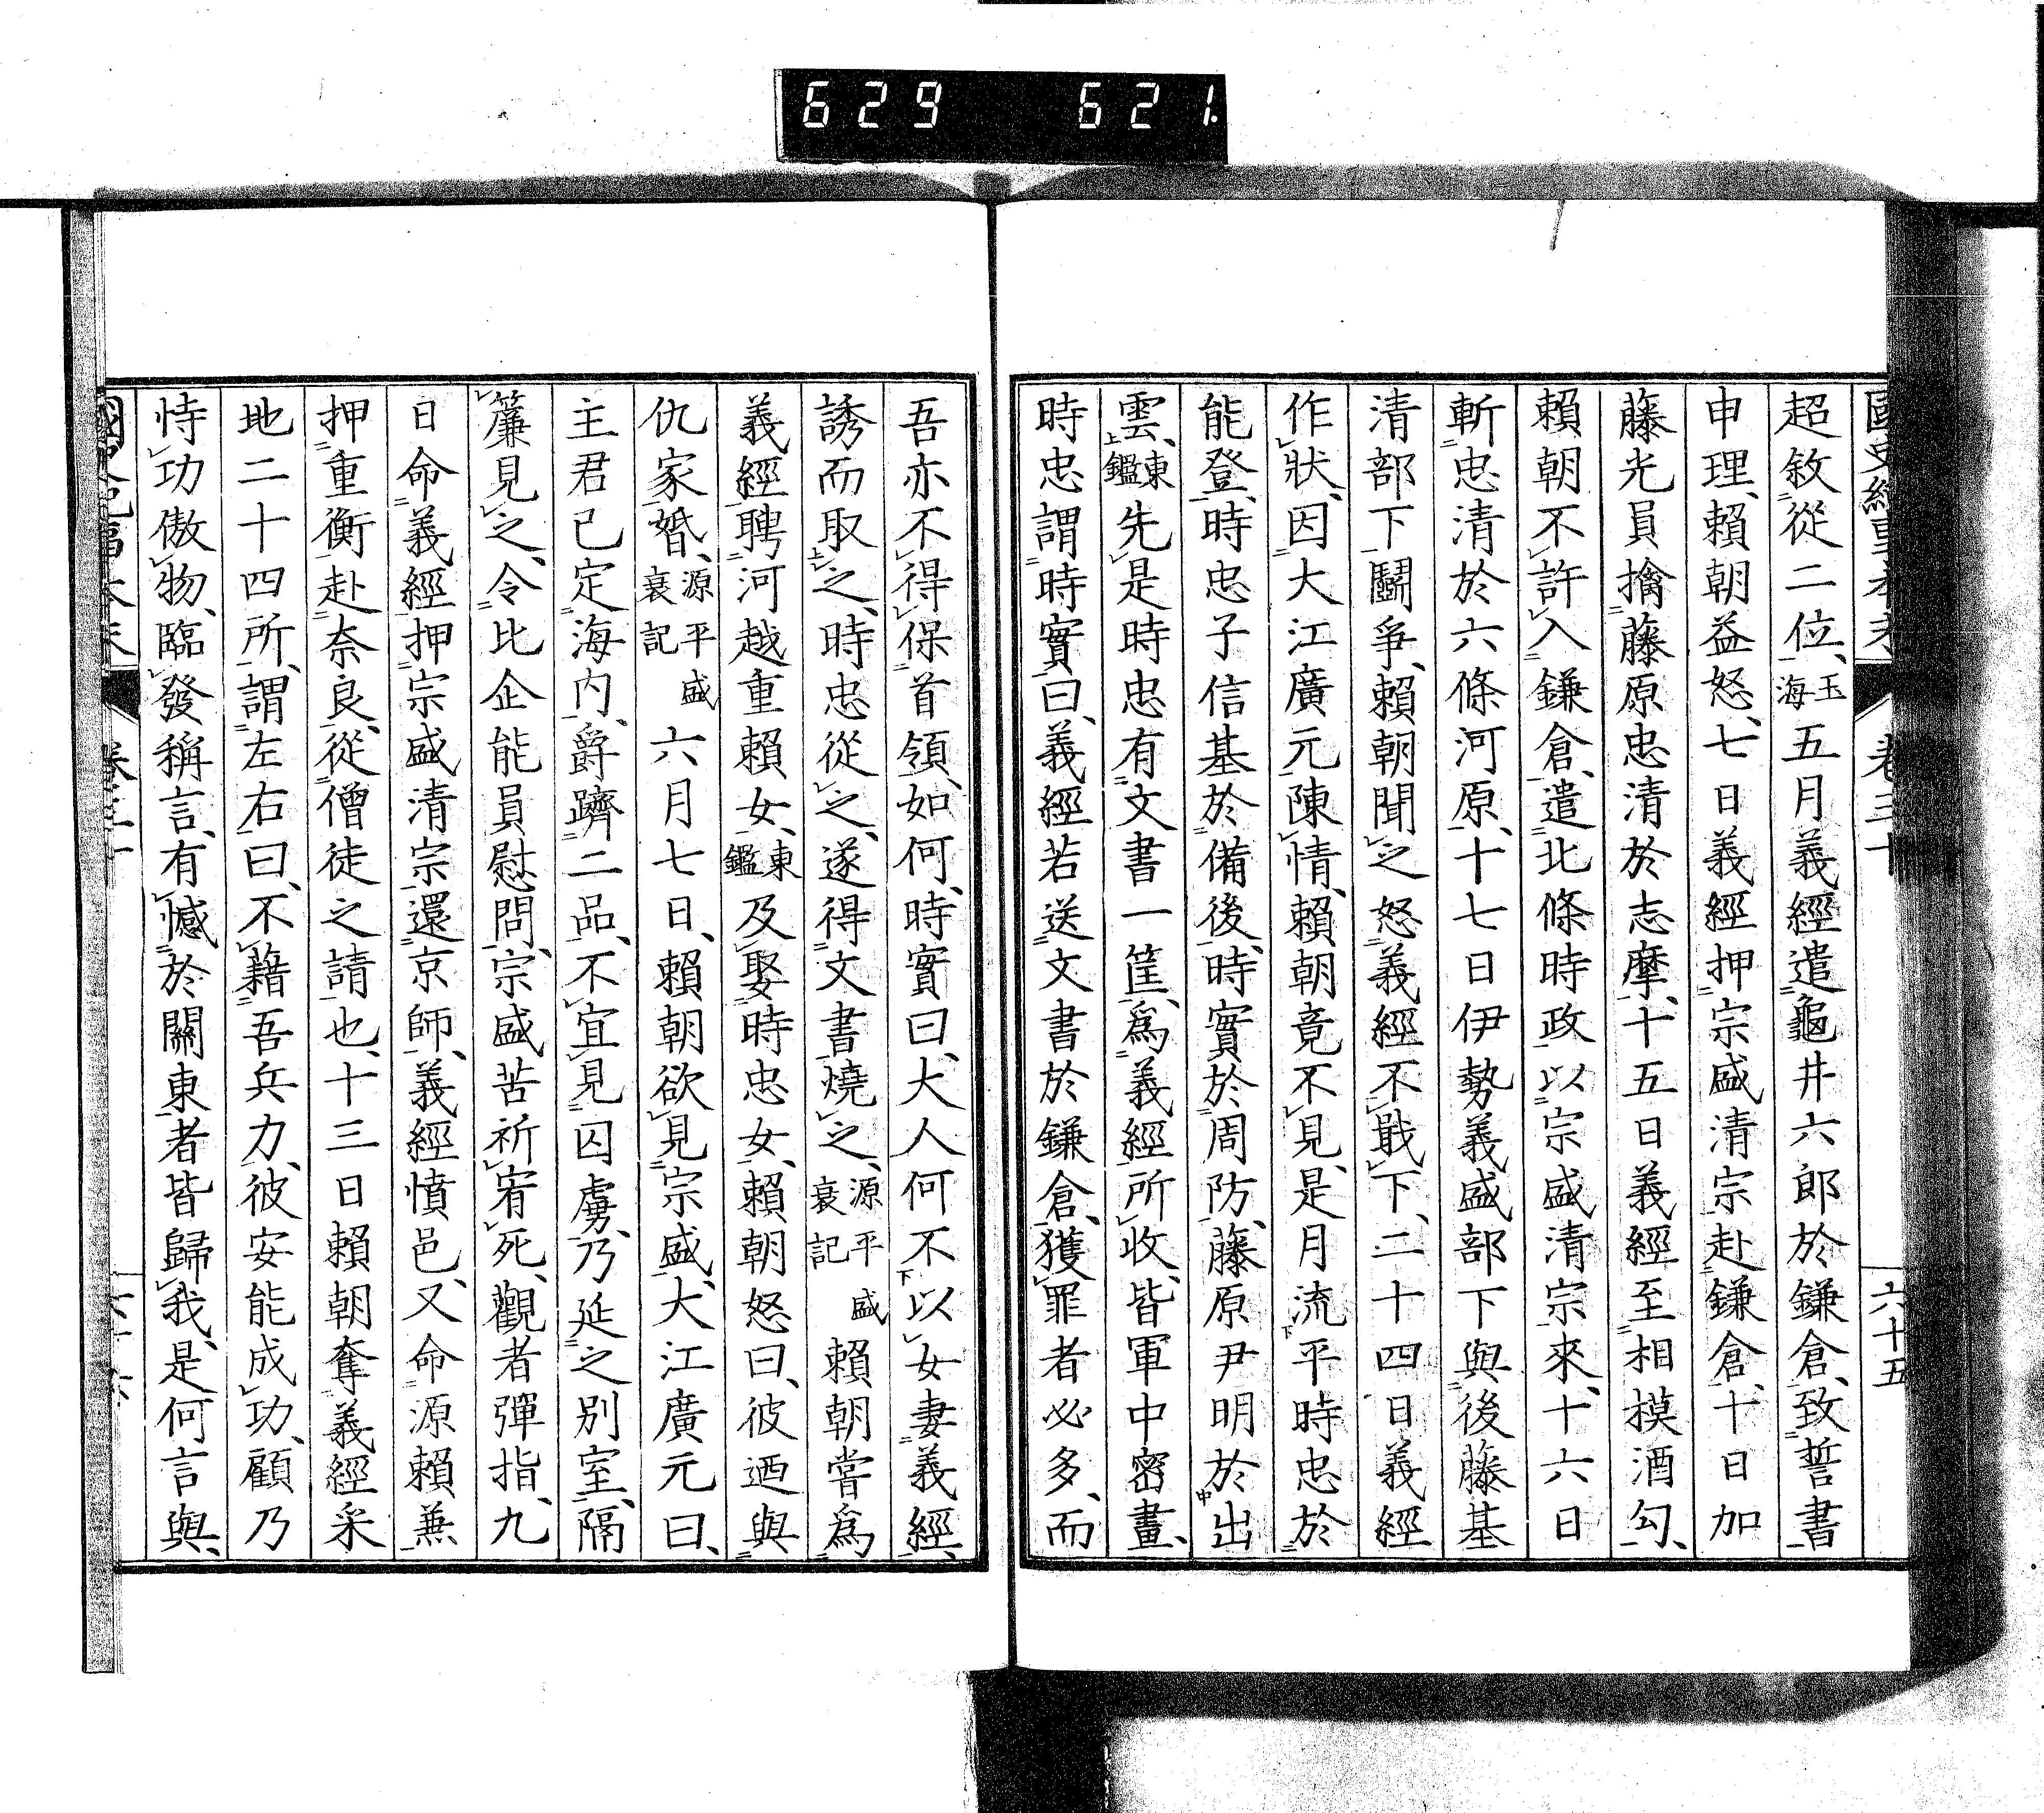 629 621
超敘從二位、玉海五月義經遣龜井六郎於鎌倉、致誓書
申理、賴朝益怒、七日義經押宗盛清宗赴鎌倉、十日加
藤光員擒藤原忠清於志摩、十五日義經至相摸酒匂、
賴朝不許入鎌倉、遣北條時政以宗盛清宗來、十六日
斬忠清於六條河原、十七日伊勢義盛部下與後藤基
清部下鬪爭、賴朝聞之怒義經不戢下、二十四日義經
作狀、因大江廣元陳情、賴朝竟不見、是月流平時忠於
能登、時忠子信基於備後、時實於周防、藤原尹明於出
雲、東鑑先是時忠有文書一筐、爲義經所收、皆軍中密畫、
時忠謂時實曰、義經若送文書於鎌倉、獲罪者必多、而
六十五
吾亦不得保首領、如何、時實曰、大人何不以女妻義經、
誘而取之、時忠從之、遂得文書燒之、源平盛衰記賴朝嘗爲
義經聘河越重賴女、東鑑及娶時忠女、賴朝怒曰、彼迺與
仇家婚、源平盛衰記六月七日、賴朝欲見宗盛、大江廣元曰、
主君已定海内、爵躋二品、不宜見囚虜、乃延之別室、隔
簾見之、令比企能員慰問、宗盛苦祈宥死、觀者彈指、九
日命義經押宗盛清宗還京師、義經憤邑、又命源賴兼
押重衡赴奈良、從僧徒之請也、十三日賴朝奪義經釆
地二十四所、謂左右曰、不藉吾兵力、彼安能成功、顧乃
恃功傲物、臨發稱言、有憾於關東者皆歸我、是何言與、